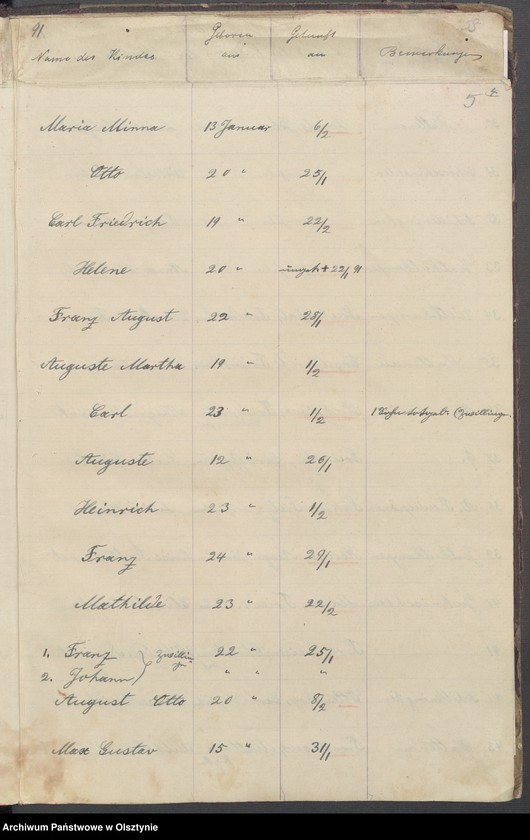 91.
Name des Kindes
Geboren am
Getauft am
Bemerkungen
5
Maria Minna 13 Januar 6/2
Otto 20 " 25/1
Carl Friedrich 19 " 22/2
Helene 20 " ungt. + 22/1 91
Franz August 22 " 28/1
Auguste Martha 19 " 1/2
Carl 23 " 1/2 1 totgeb. (Zwillinge
Auguste 12 " 26/1
Heinrich 23 " 1/2
Franz 24 " 29/1
Mathilde 23 " 22/2
1. Franz ) Zwillinge 22 " 25/1
2. Johann ) " " "
August Otto 20 " 8/2
Max Gustav 15 " 31/1
Archiwum Państwowe w Olsztynie